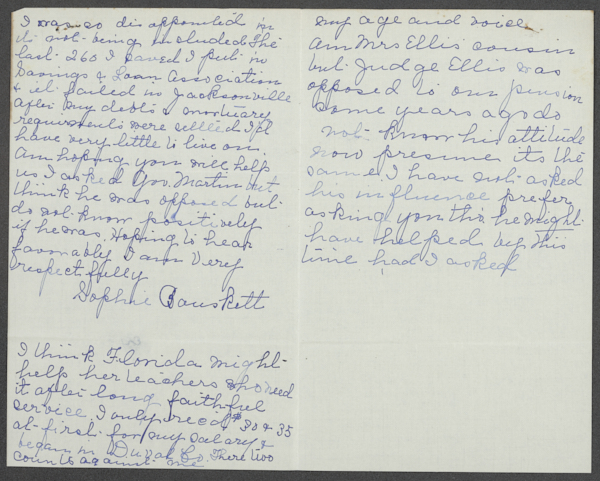 I was so disappointed in
its not being included. The
last 260 I saved I put in
Savings & Loan Association
& it failed in Jacksonville
After my debts & mortuary
requirments were settled I'll
have very little to live on.
Am hoping you will help
us I asked Gov. Martin but
think he was opposed but
do not know positively
if he was. Hoping to hear
favorably I am Very
respectfully
Sophie Bauskett
I think Florida might
help her teachers who need
it after long faithful
service. I only rec'd $30 & 35
at first for my salary &
began in Duval Co. These two
counts against me
my age and voice.
Am Mrs Ellis cousin
but Judge Ellis was
opposed to our pension
some years ago do
not know his attitude
now presume its the
same. I have not asked
his influence prefer
asking you tho he might
have helped by this
time had I asked